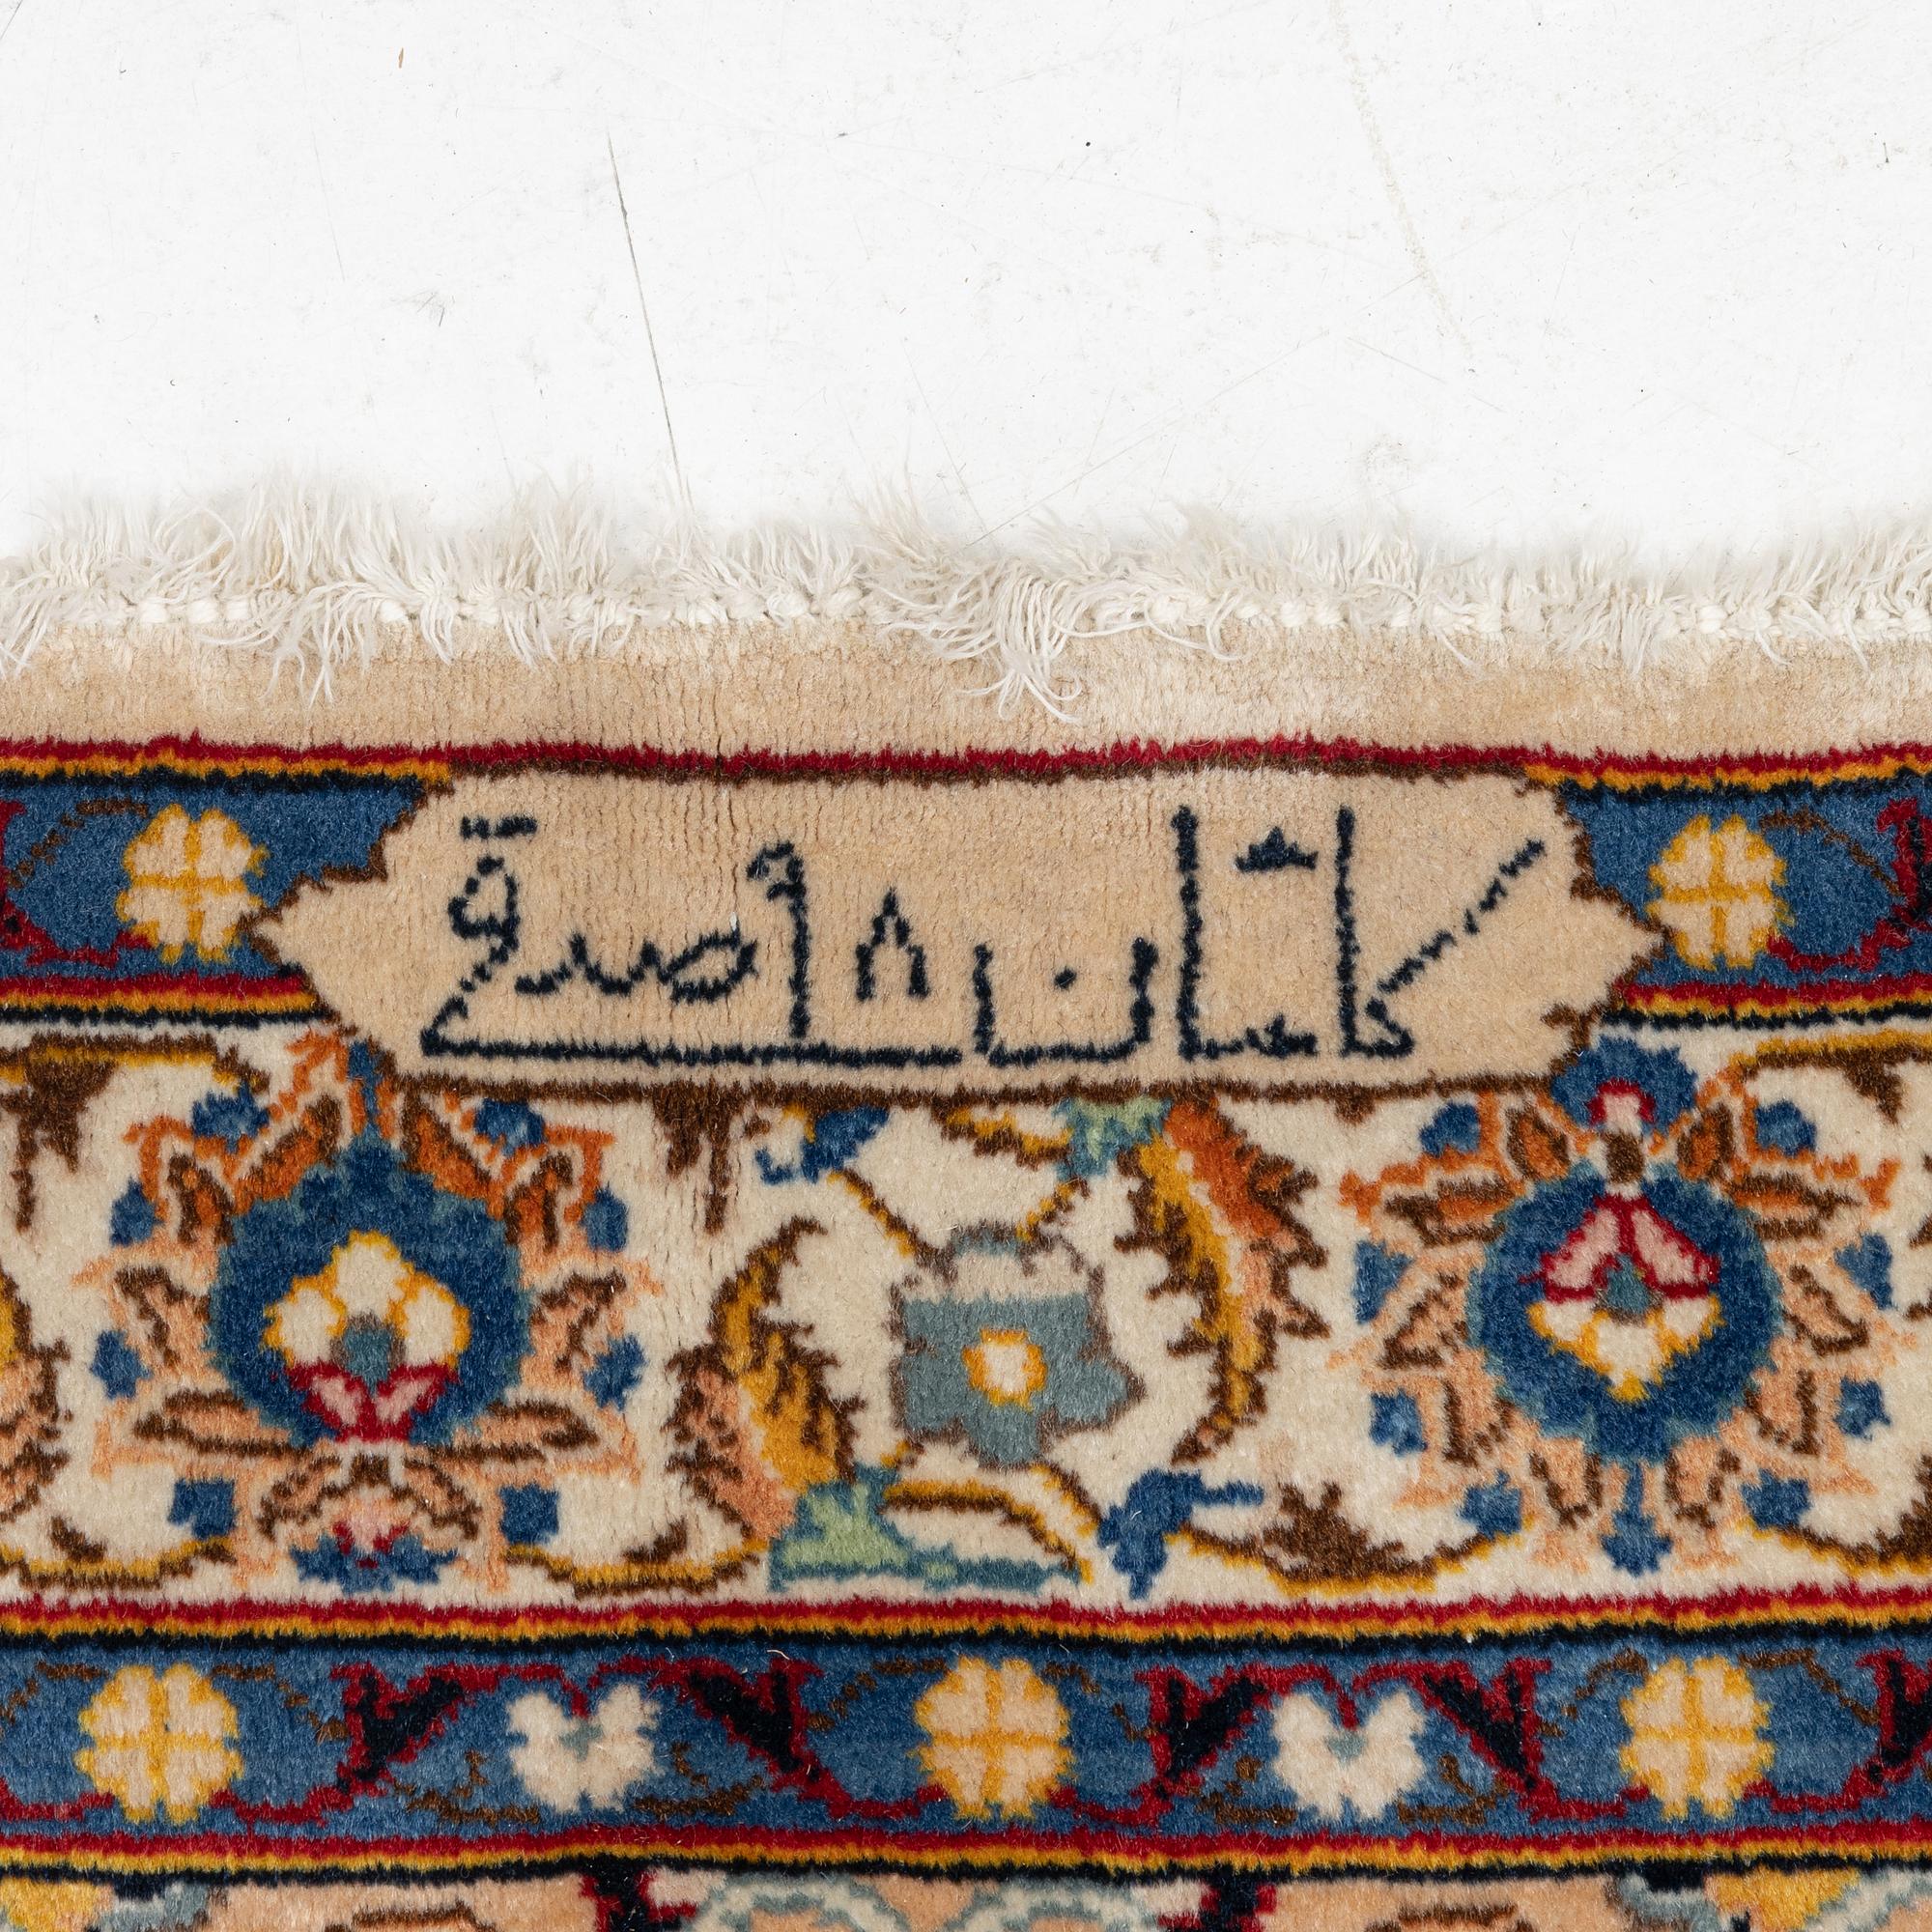 کاشان ۹۸ صدقی